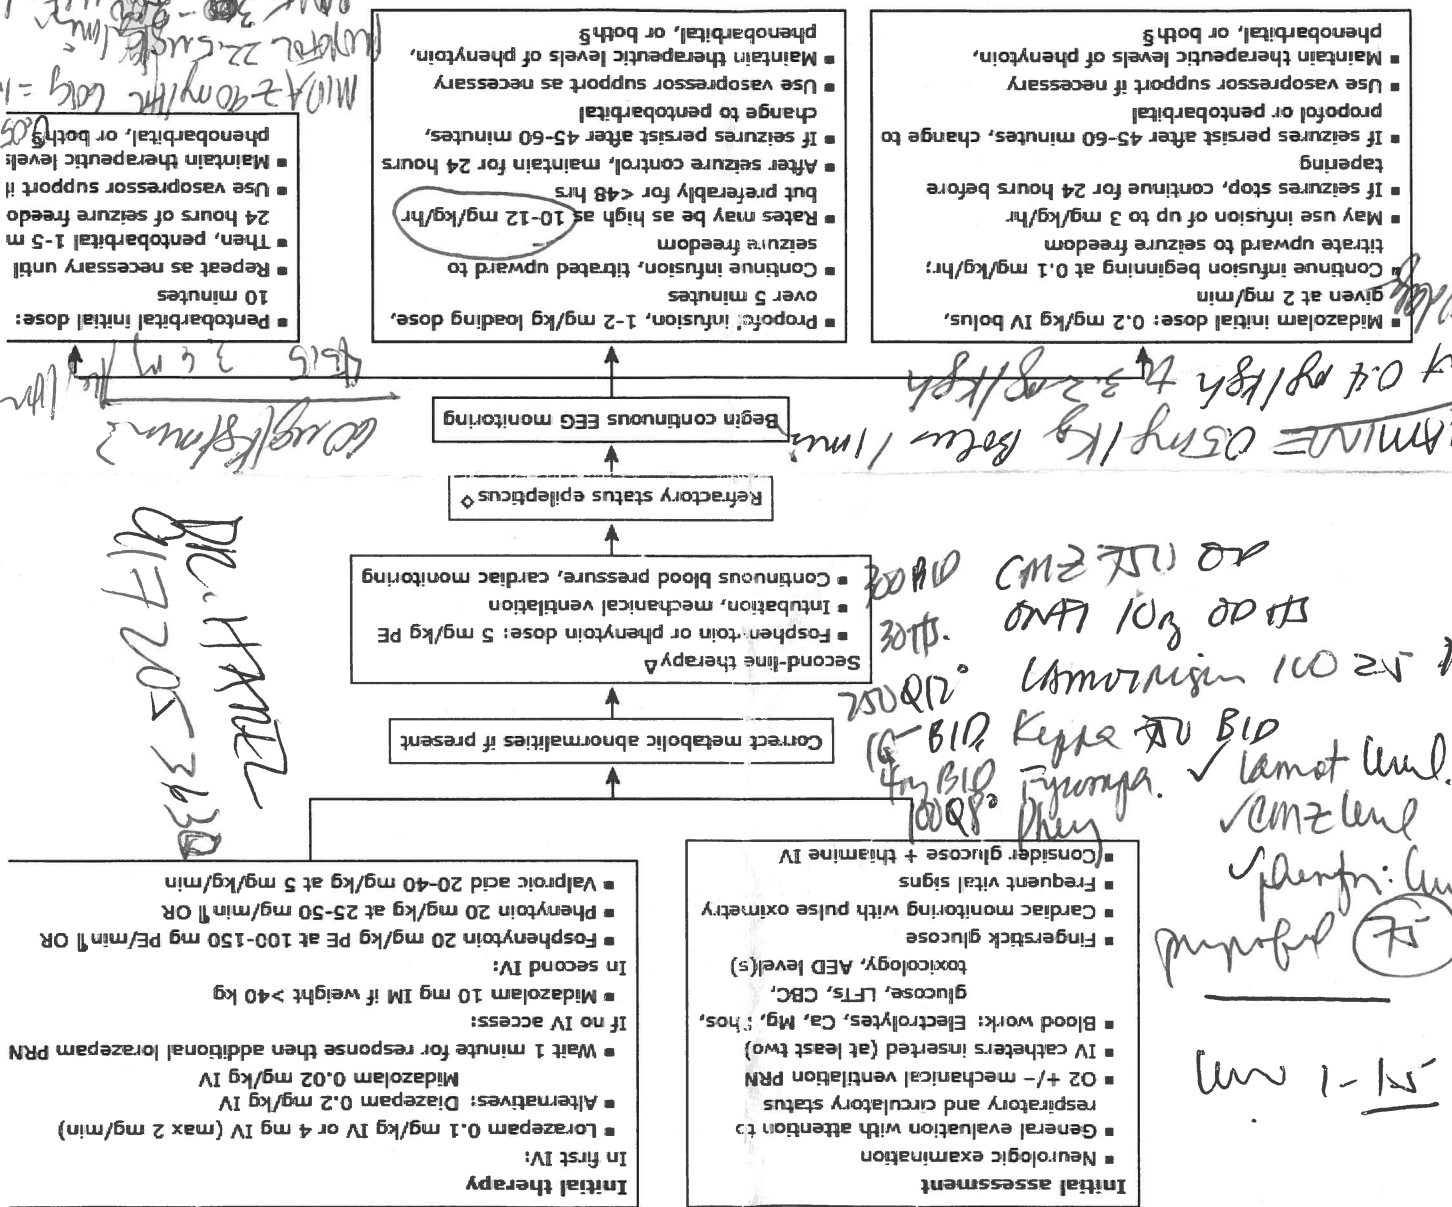 Initial assessment
▪ Neurologic examination
▪ General evaluation with attention to
respiratory and circulatory status
▪ O2 +/− mechanical ventilation PRN
▪ IV catheters inserted (at least two)
▪ Blood work: Electrolytes, Ca, Mg, Phos,
glucose, LFTs, CBC,
toxicology, AED level(s)
▪ Fingerstick glucose
▪ Cardiac monitoring with pulse oximetry
▪ Frequent vital signs
▪ Consider glucose + thiamine IV
Initial therapy
In first IV:
▪ Lorazepam 0.1 mg/kg IV or 4 mg IV (max 2 mg/min)
▪ Alternatives: Diazepam 0.2 mg/kg IV
Midazolam 0.02 mg/kg IV
▪ Wait 1 minute for response then additional lorazepam PRN
If no IV access:
▪ Midazolam 10 mg IM if weight >40 kg
In second IV:
▪ Fosphenytoin 20 mg/kg PE at 100-150 mg PE/min¶ OR
▪ Phenytoin 20 mg/kg at 25-50 mg/min¶ OR
▪ Valproic acid 20-40 mg/kg at 5 mg/kg/min
Correct metabolic abnormalities if present
Second-line therapyΔ
▪ Fosphenytoin or phenytoin dose: 5 mg/kg PE
▪ Intubation, mechanical ventilation
▪ Continuous blood pressure, cardiac monitoring
Refractory status epilepticus◇
Begin continuous EEG monitoring
▪ Midazolam initial dose: 0.2 mg/kg IV bolus,
given at 2 mg/min
▪ Continue infusion beginning at 0.1 mg/kg/hr;
titrate upward to seizure freedom
▪ May use infusion of up to 3 mg/kg/hr
▪ If seizures stop, continue for 24 hours before
tapering
▪ If seizures persist after 45-60 minutes, change to
propofol or pentobarbital
▪ Use vasopressor support if necessary
▪ Maintain therapeutic levels of phenytoin,
phenobarbital, or both§
▪ Propofol infusion, 1-2 mg/kg loading dose,
over 5 minutes
▪ Continue infusion, titrated upward to
seizure freedom
▪ Rates may be as high as 10-12 mg/kg/hr
but preferably for <48 hrs
▪ After seizure control, maintain for 24 hours
▪ If seizures persist after 45-60 minutes,
change to pentobarbital
▪ Use vasopressor support as necessary
▪ Maintain therapeutic levels of phenytoin,
phenobarbital, or both§
▪ Pentobarbital initial dose:
10 minutes
▪ Repeat as necessary until
▪ Then, pentobarbital 1-5 m
24 hours of seizure freedo
▪ Use vasopressor support if
▪ Maintain therapeutic levels
phenobarbital, or both§
AMINE = 0.5mg/kg Bolus / 1 min
0.4 mg/kgh to 3.2 mg/kgh
60 ug/kg/min
3.6 mg
MIDAZ 90 mg/HR 60kg =
300 BID CMZ 750 OD
30 HS. ONFI 10 OD HS
250 Q12° Lamotrigin 100 25
1G BID Keppra BID
4mg BID Fycompa. ✓ lamot level.
100 Q8° Pheny ✓ CMZ level
propofol 75
1 - 1.5
DR. HANTEZ
917 205 3630